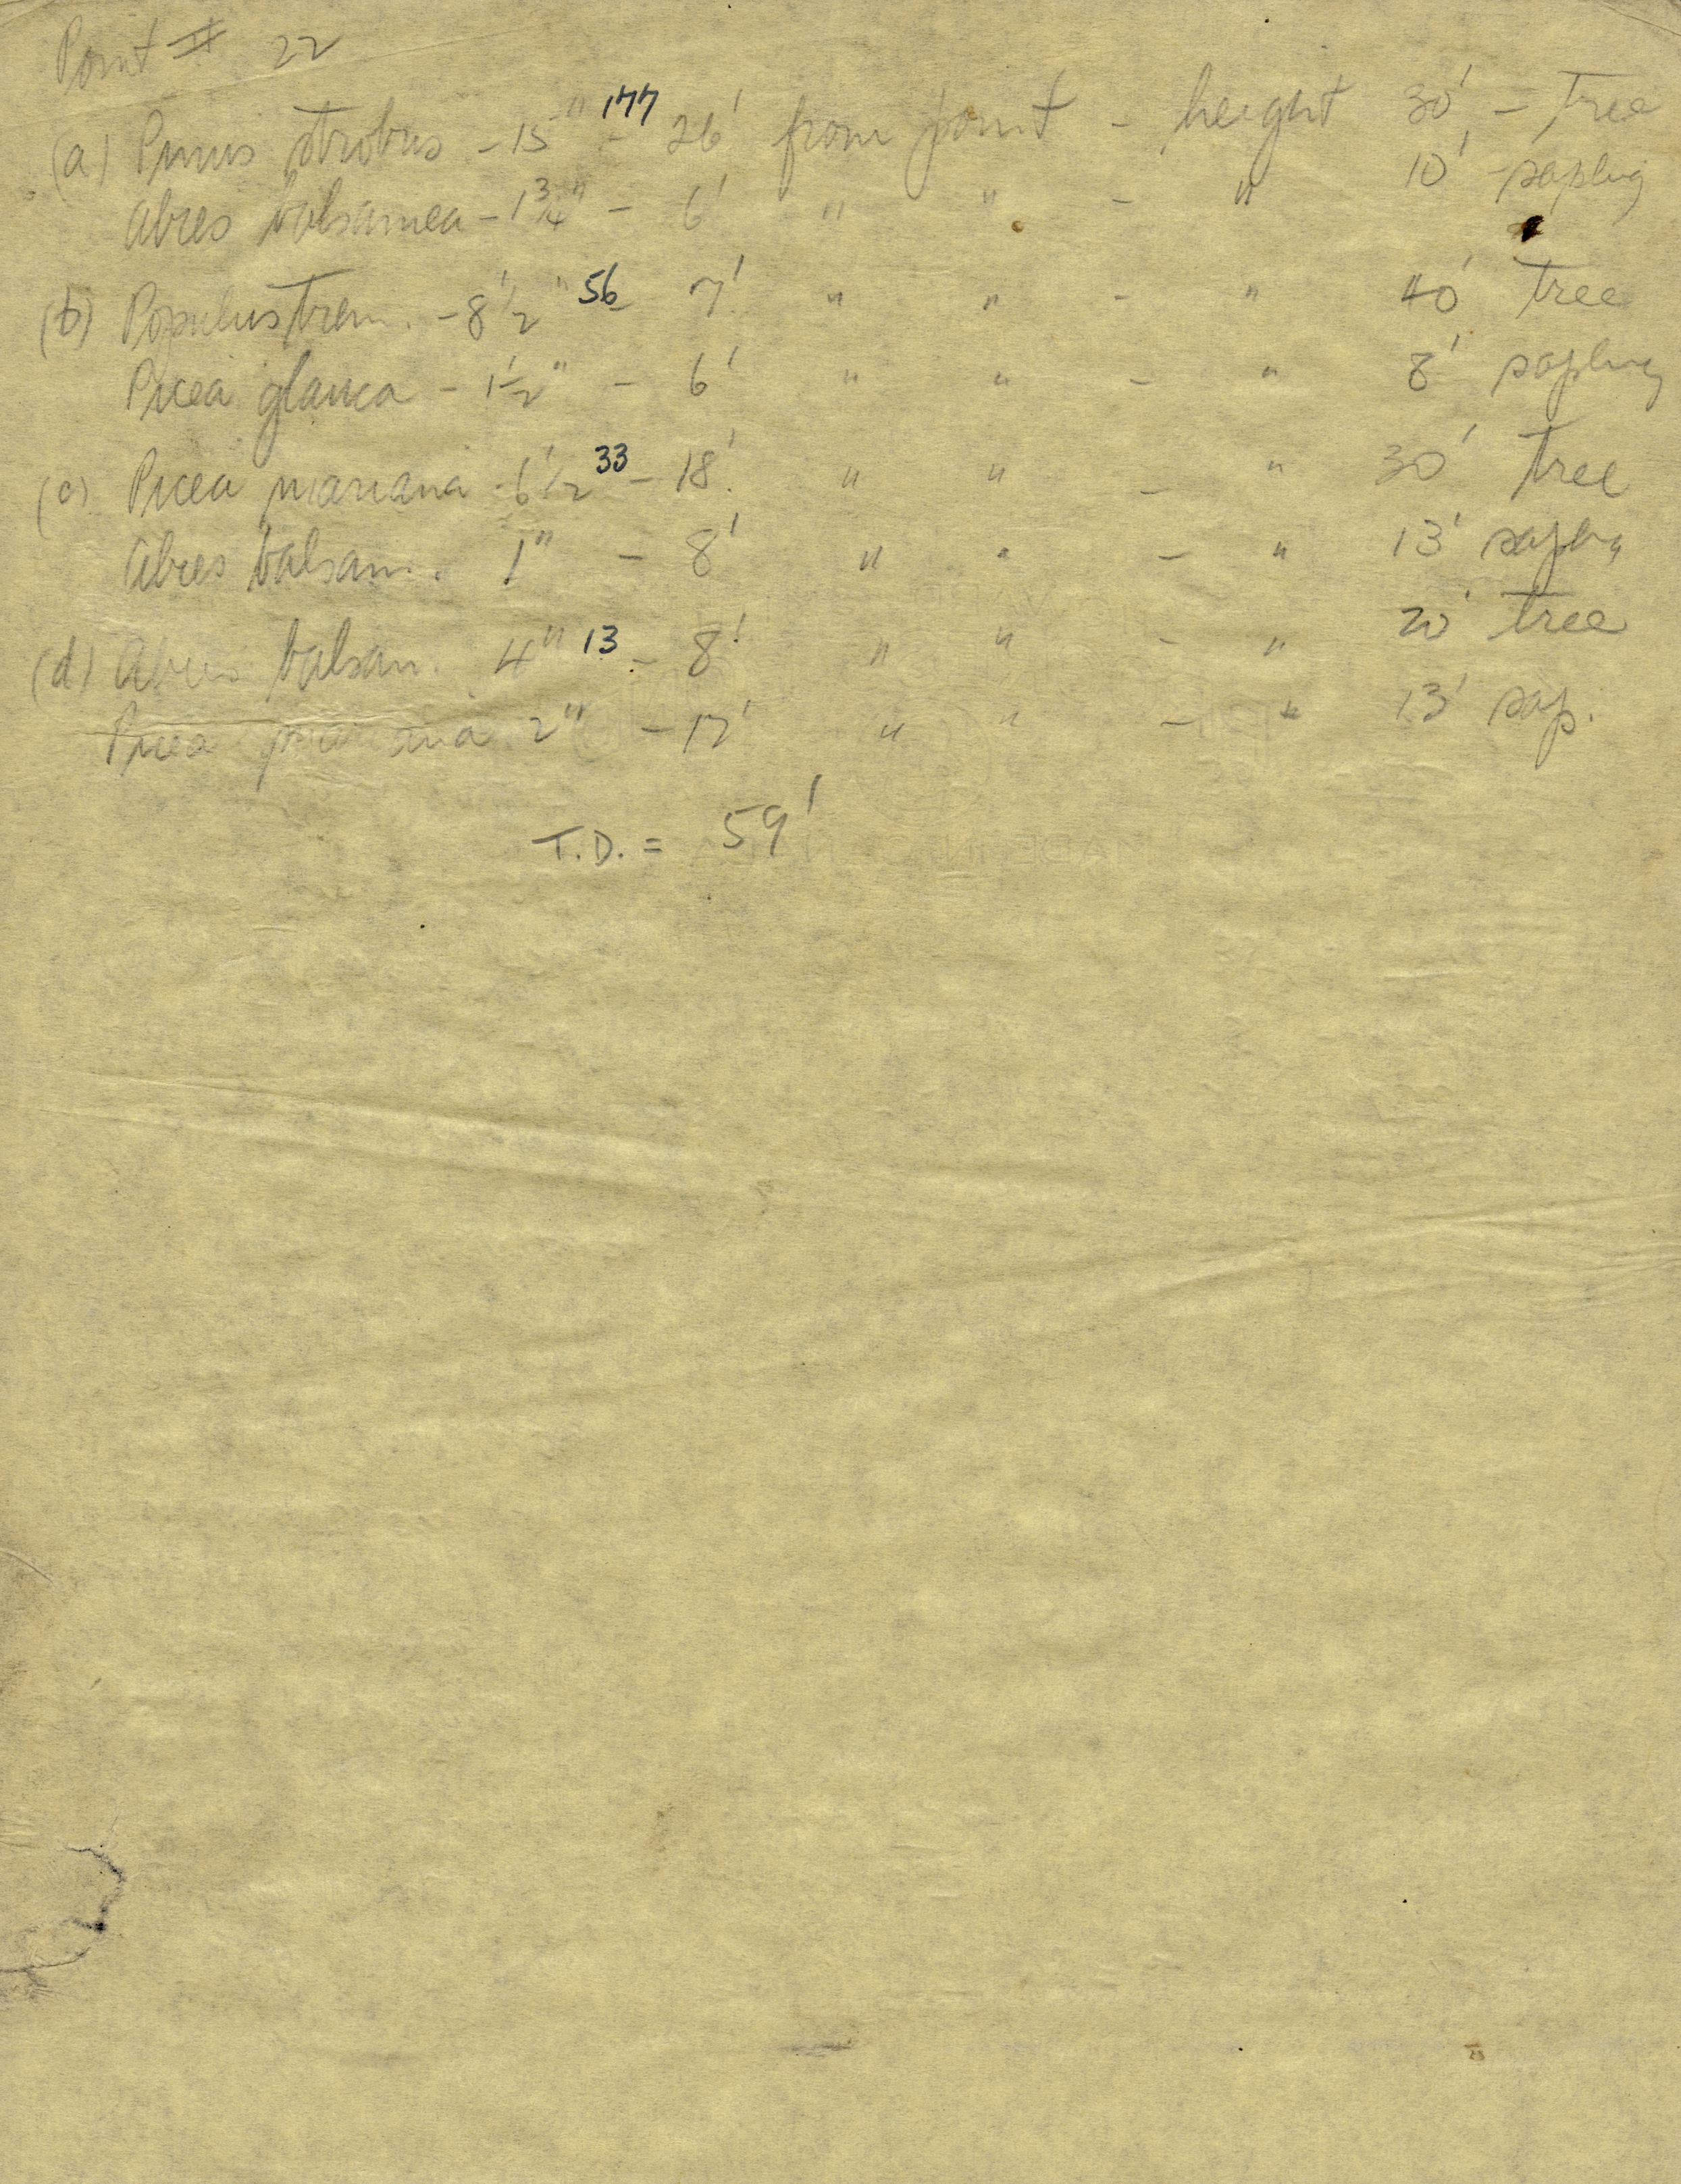 Point # 22
(a) Pinus strobus - 15" 177 - 26' from point - height 30' - tree
Abies balsamea - 1 3/4" - 6' " " - " 10' - sapling
(b) Populus trem. - 8 1/2" 56 7' " " - " 40' tree
Picea glauca - 1 1/2" - 6' " " - " 8' sapling
(c) Picea mariana - 6 1/2 33 - 18' " " - " 30' tree
Abies balsam. 1" - 8' " " - " 13' sapling
(d) Abies balsam. 4" 13 - 8' " " - " 20' tree
Picea mariana 2" - 12' " " - " 13' sap.
T.D. = 59'